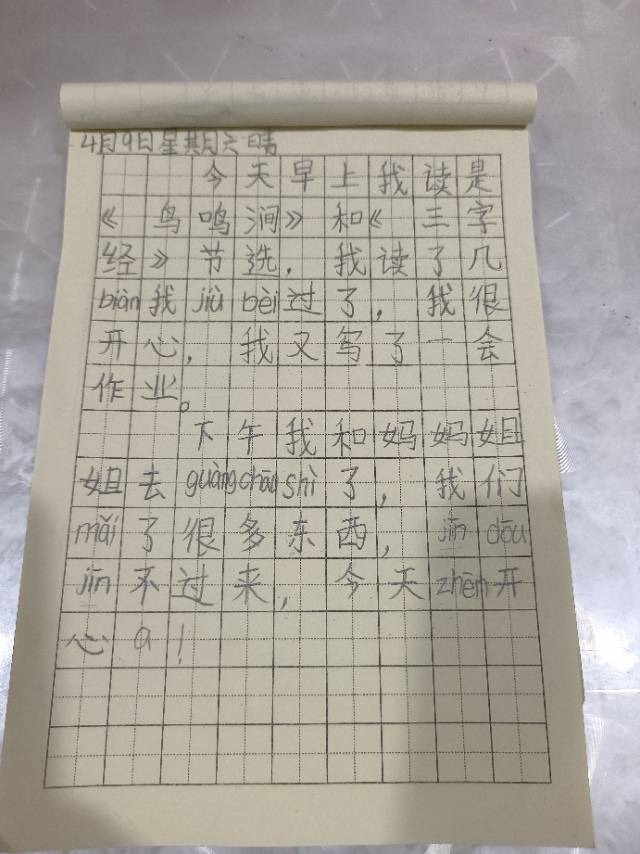 4月9日星期六晴
今天早上我读是
《鸟鸣涧》和《三字
经》节选，我读了几
biàn我jiù bèi过了，我很
开心，我又写了一会
作业。
下午我和妈妈姐
姐去guàng chāo shì了，我们
mǎi了很多东西，jīn dōu
jīn不过来，今天zhēn开
心a！